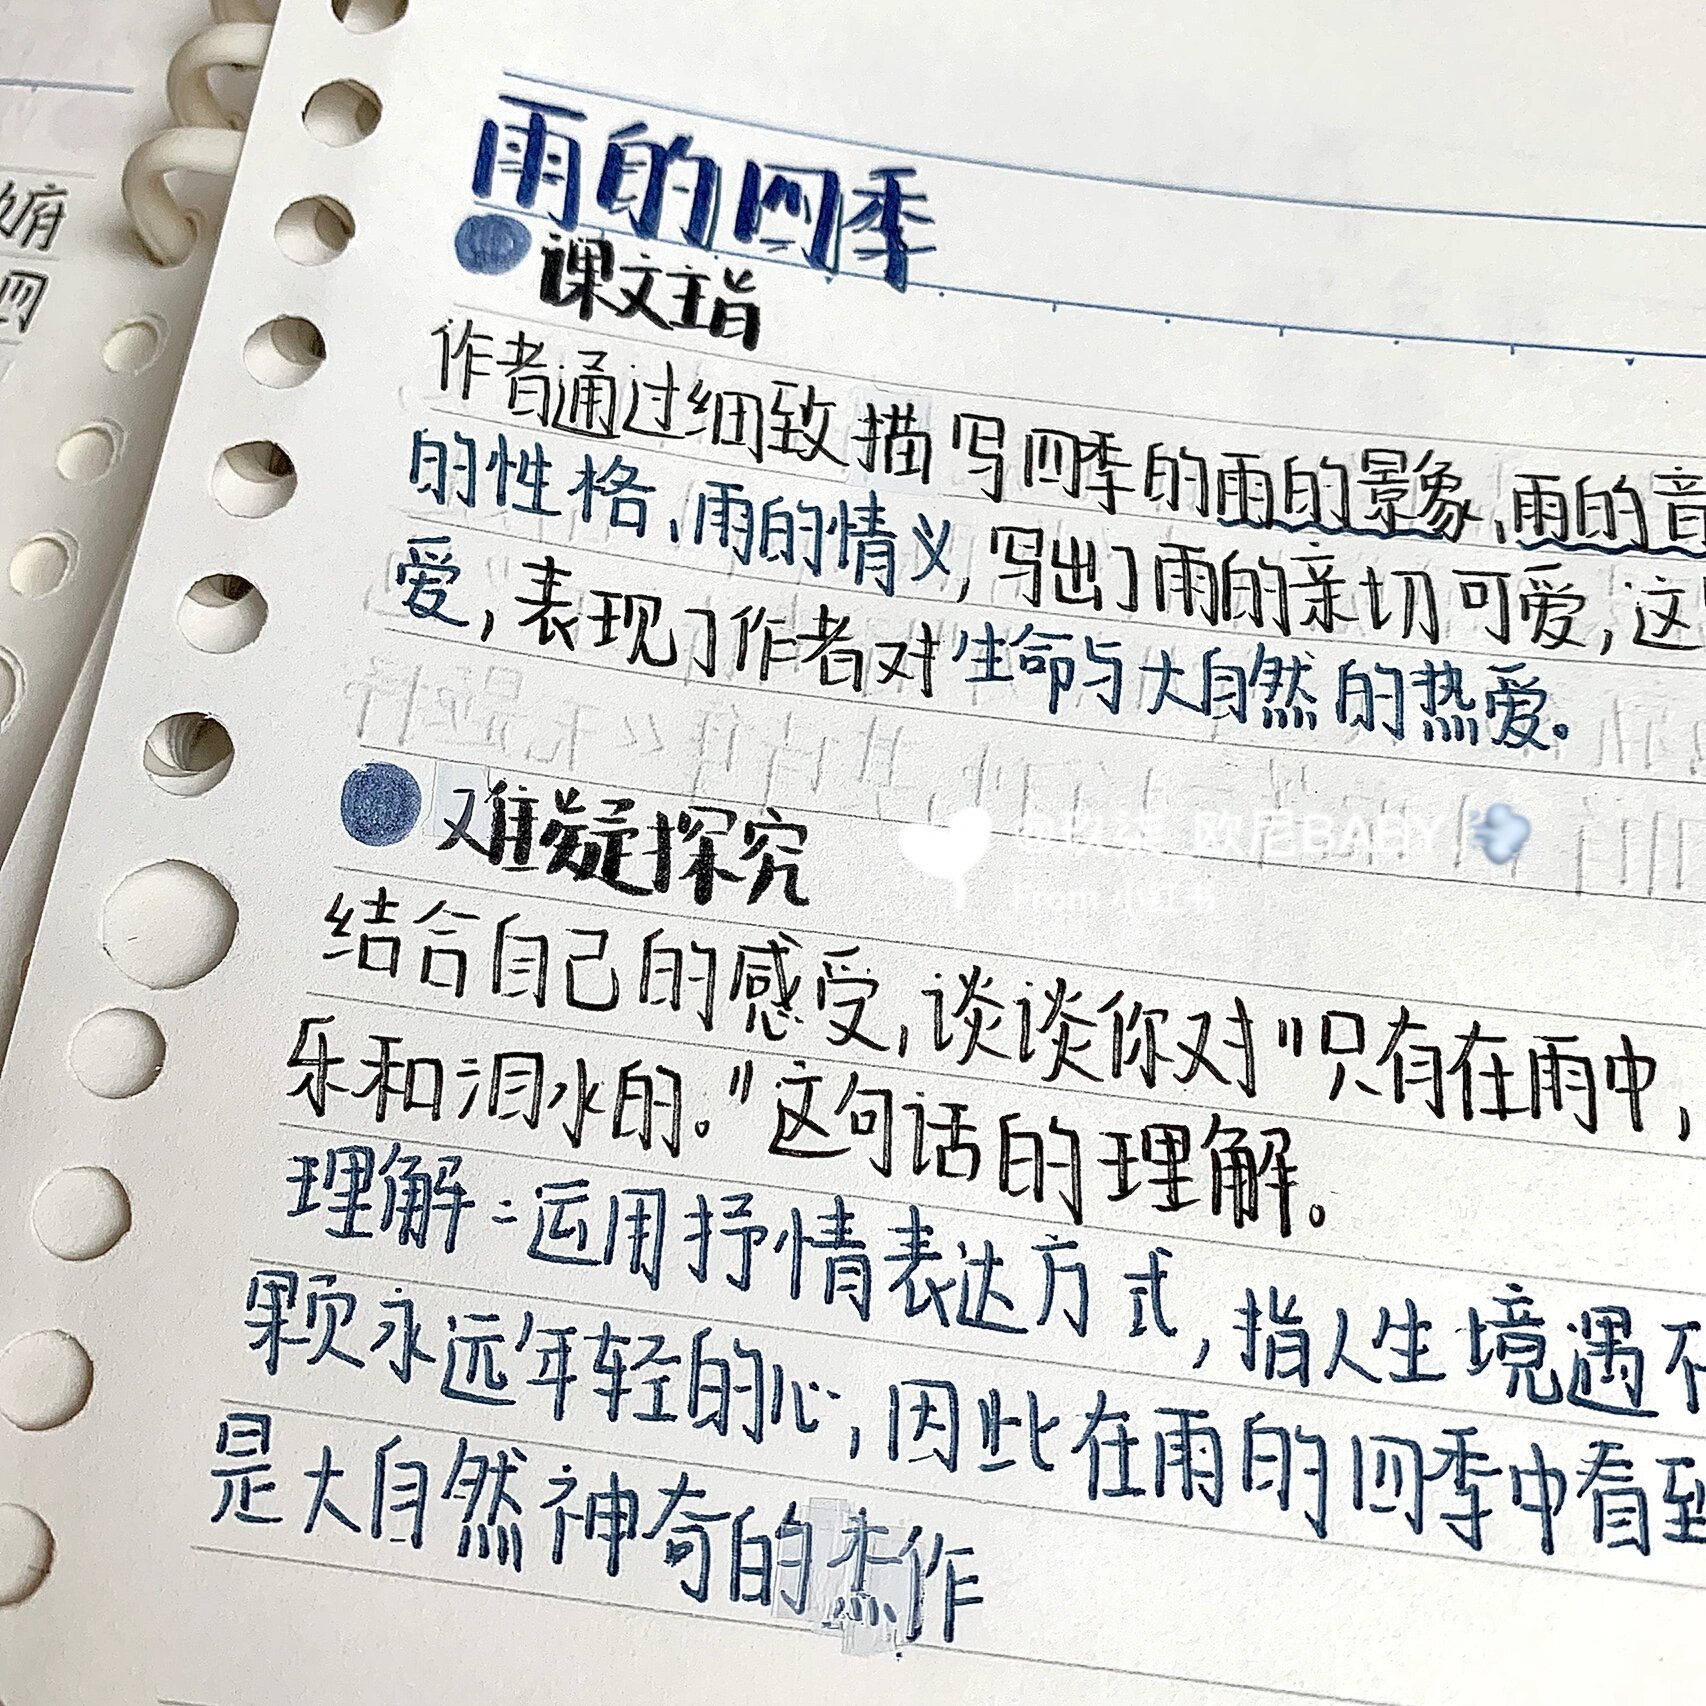 雨的四季
课文主旨
作者通过细致描写四季的雨的景象、雨的音
的性格、雨的情义,写出了雨的亲切可爱,这
爱,表现了作者对生命与大自然的热爱。
难疑探究
结合自己的感受,谈谈你对"只有在雨中,
乐和泪水的。"这句话的理解。
理解:运用抒情表达方式,指人生境遇不
颗永远年轻的心,因此在雨的四季中看到
是大自然神奇的杰作